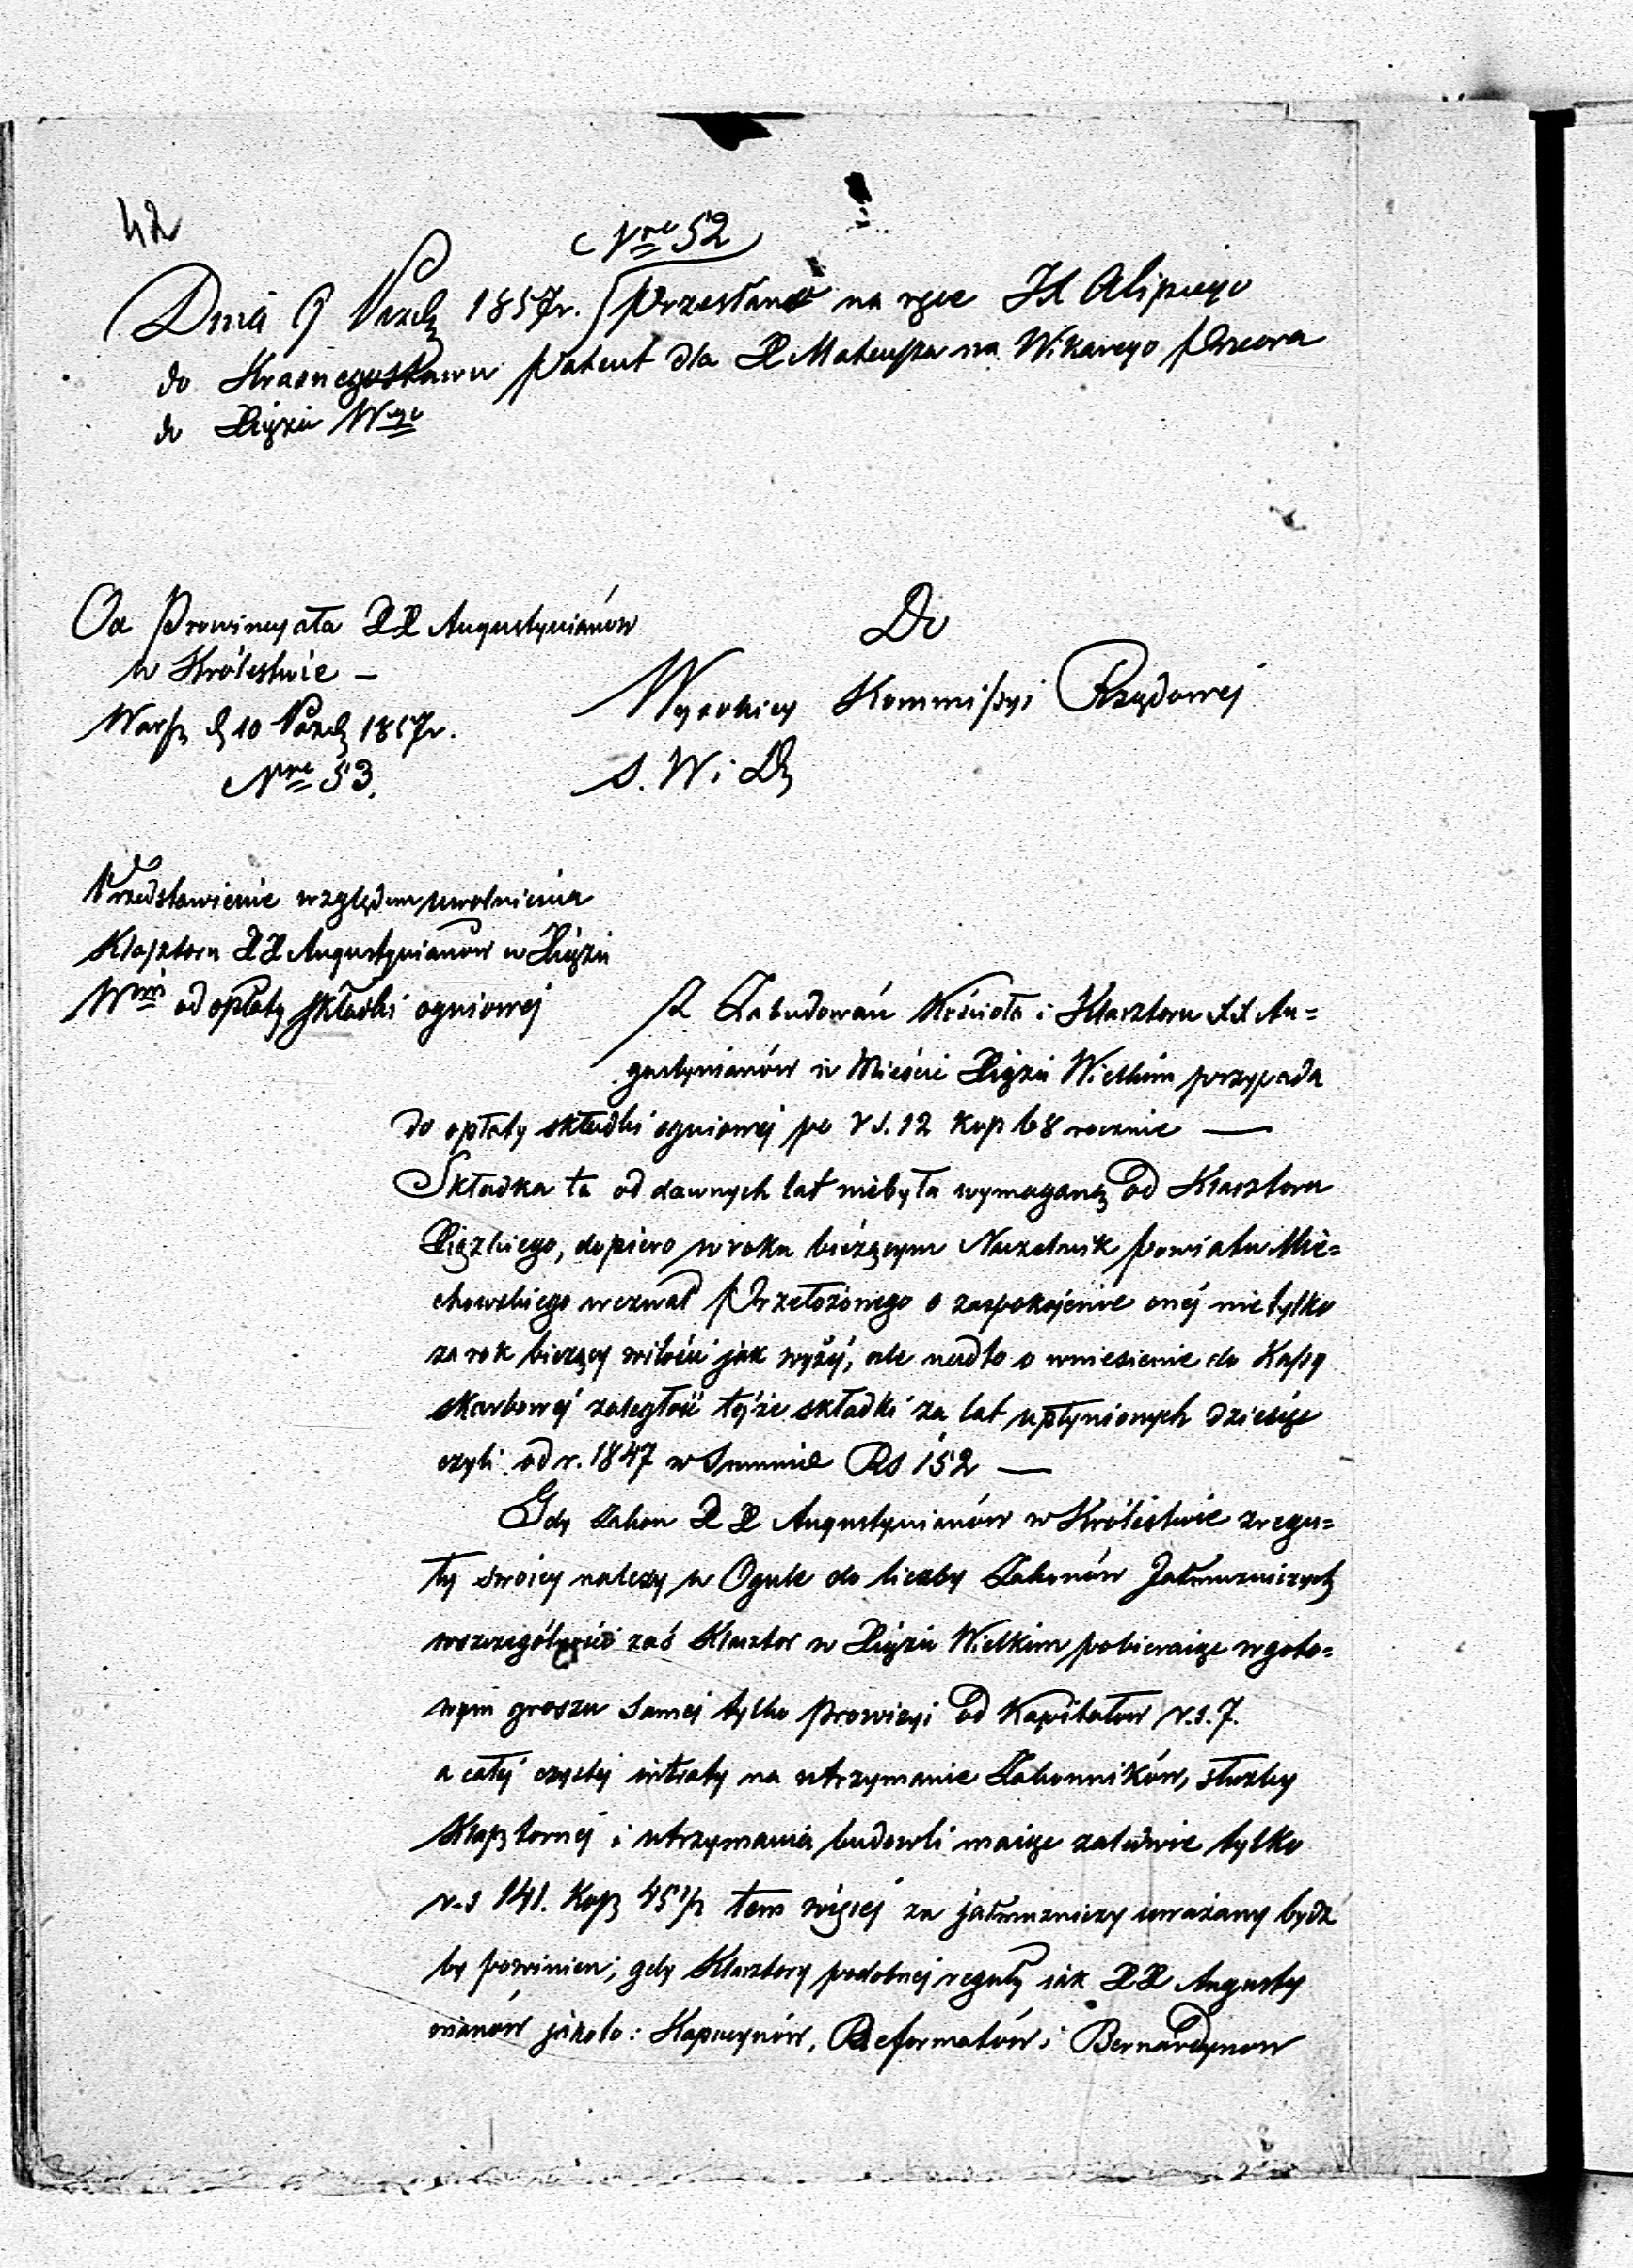 42
Nro 52
Dnia 9 Paźdz 1857r. Przesłano na ręce X Alipiego
do Krasnegostawu patent dla X Mateusza na Wikarego Przeora
do Xiąża Wgo
Od Prowincyała XX Augustynianów
w Królestwie —
Warsz d 10 Paźdz 1857r.
Nro 53.
Do
Wysokiey Kommissyi Rządowej
S. W i D
Przedstawienie względem uwolnienia
Klasztoru XX Augustynianow w Xiążu
Wm od opłaty składki ogniowej
Z Zabudowań Kościoła i Klasztoru XX Au=
gustynianów w Mieście Xiążu Wielkim przypada
do opłaty składki ogniowej po rs. 12 kop 68 rocznie —
Składka ta od dawnych lat niebyła wymaganą od Klasztoru
Xiązkiego, dopiero w roku bieżącym Naczelnik powiatu Mie=
chowskiego wezwał Przełożonego o zaspokojenie onej nietylko
za rok bieżący w ilości jak wyżej, ale nadto o wniesienie do Kassy
skarbowej zaległości tejże składki za lat upłynionych dziesięć
czyli od r. 1847 w Summie Rs 152 —
Gdy Zakon XX Augustynianów w Królestwie z regu=
ły swoiey należy w Ogule do liczby Zakonów Jałmużniczych
wszczególności zaś Klasztor w Xiążu Wielkim pobieraiąc w goto=
wym groszu samej tylko prowizyi od Kapitałow r.s. 7.
a całej czystej intraty na utrzymanie Zakonników, służby
Klasztornej i utrzymania budowli maiąc zaledwie tylko
r.s 141. Kop 45 1/2 tem więcej za jałmużniczy uważany bydź
by powinien, gdy Klasztory podobnej reguły iak XX Augusty
nianów jakoto: Kapucynów, Reformatów i Bernardynow